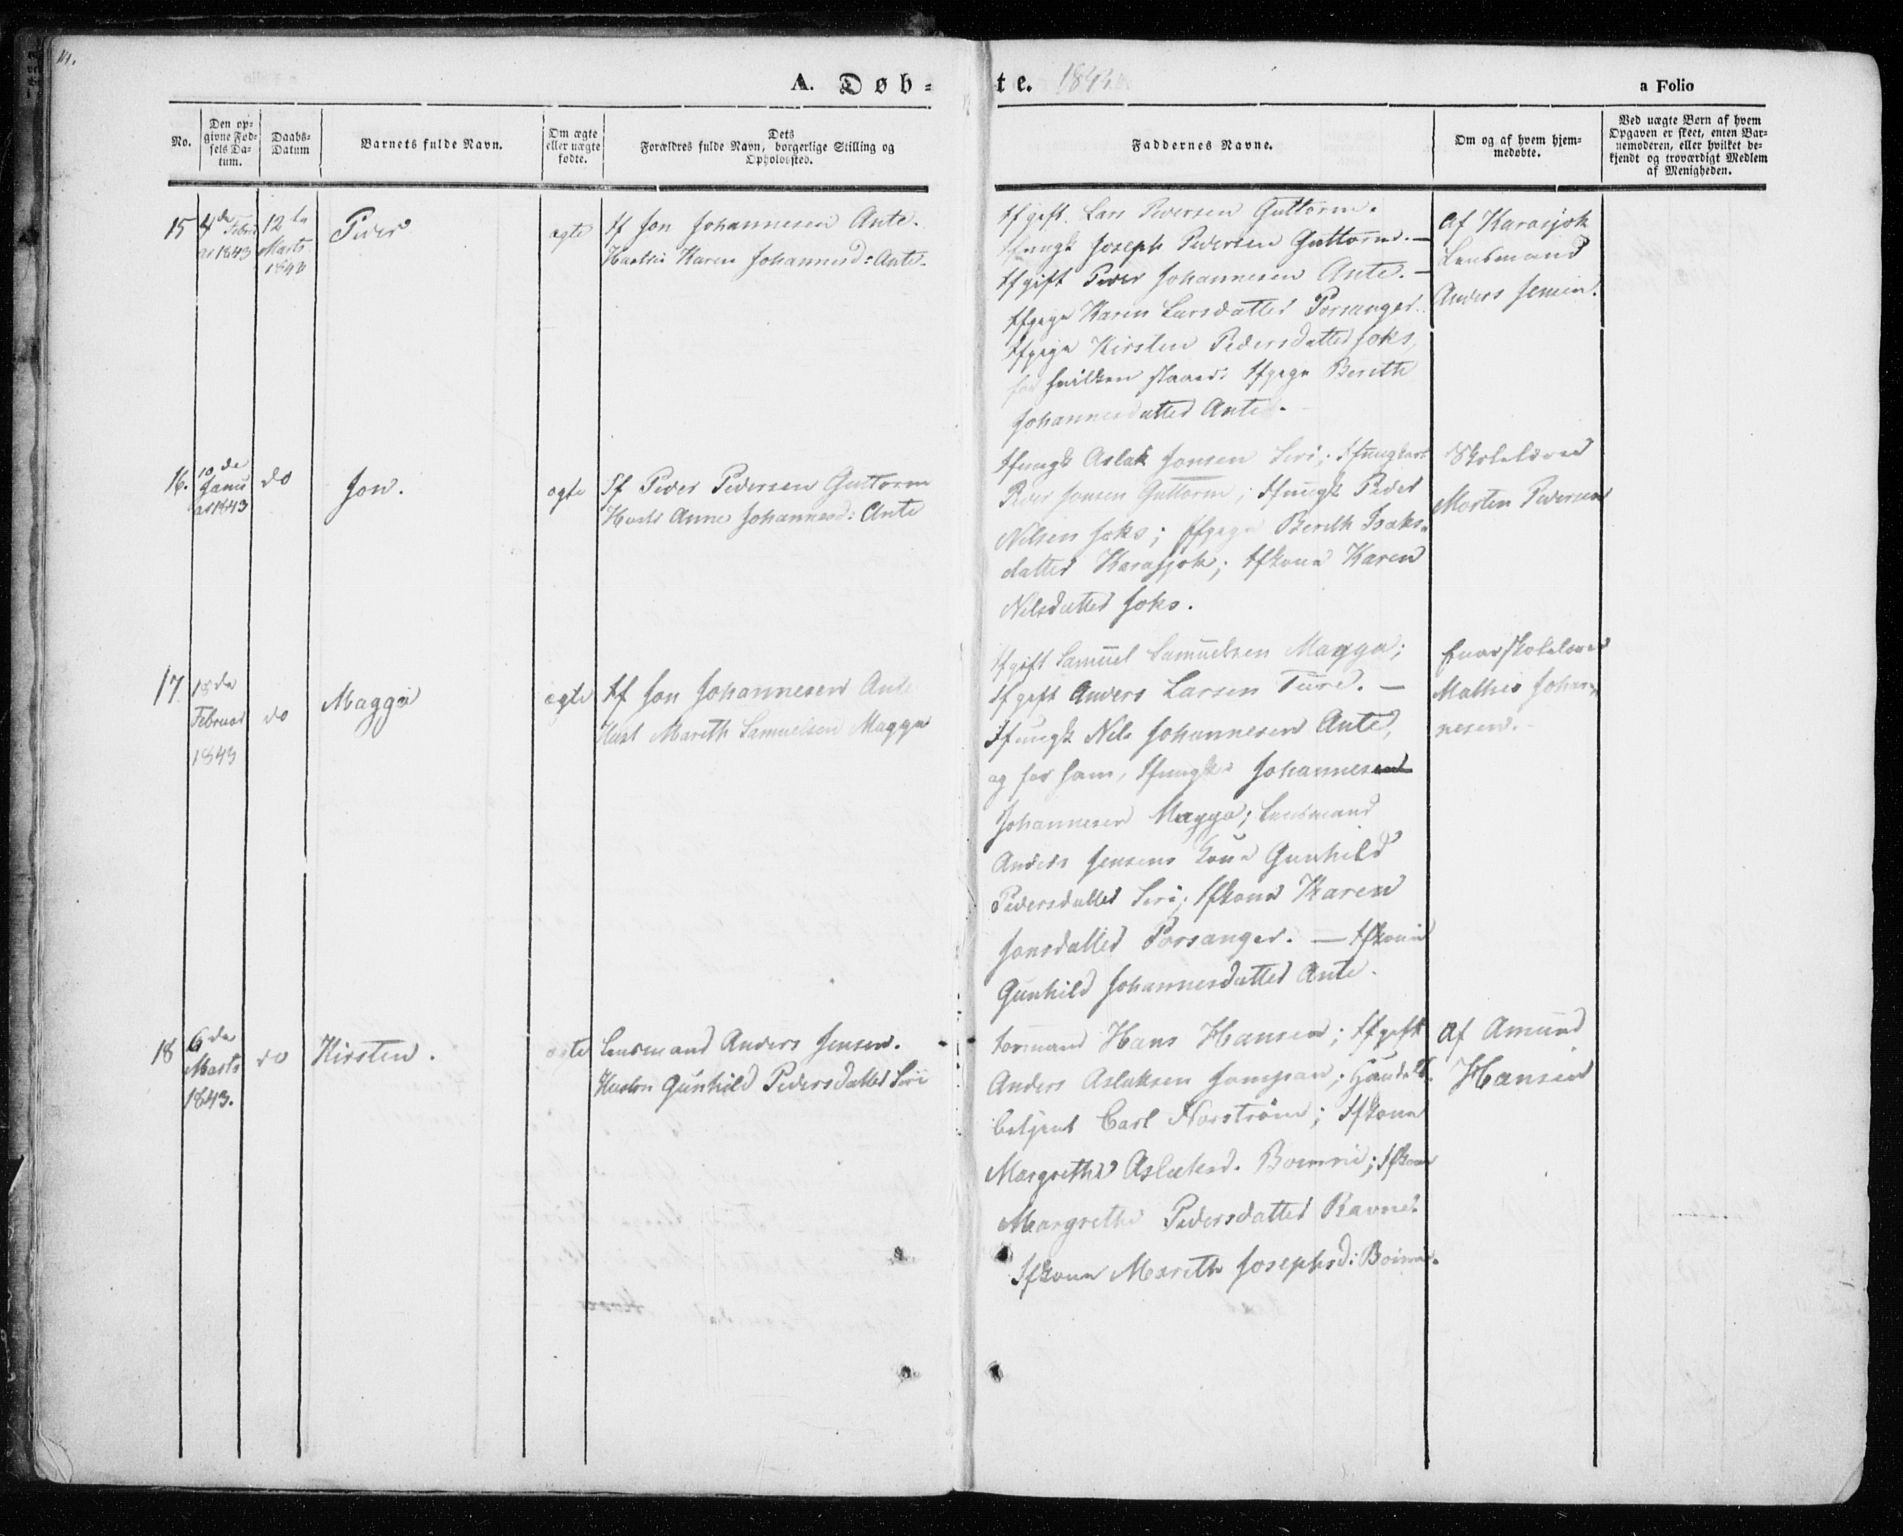 A. Døb-
te. 1843.
a Folio
No.
Den op-
givne Fød-
sels Da-
tum.
Daabs-
Datum
Barnets fulde Navn.
Om ægte
eller uægte
fødte.
Dets
Forældres fulde Navn, borgerlige Stilling og
Opholdssted.
Faddernes Navne.
Om og af hvem hjem-
medøbte.
Ved uægte Børn af hvem
Opgaven er skeet, enten Bar-
nemoderen, eller hvilket be-
kjendt og troværdigt Medlem
af Menigheden.
15
4de Febru
ar 1843
12te
Marts
1843
Peder
ægte
Sf Jon Johannesen Ante.
Karen Johannesd: Ante.
Sfgift. Lars Pedersen Guttorm.
Sfungk Joseph Pedersen Guttorm. —
Sfgift Peder Johannesen Ante. —
Sfpige Karen Larsdatter Porsanger.
Sfpige Kirsten Pedersdatter Joks,
for hvilken staaer: Sfpige Bereth
Johannesdatter Ante. —
Af Karasjok
Lensmand
Anders Jensen.
16.
10de
Janu
ar 1843
do
Jon.
ægte
Sf Peder Pedersen Guttorm
Anne Johannesd: Ante
Sfungk Aslak Jonsen Siri; Sfungkarl
Peder Jonsen Guttorm; Sfungk Peder
Nilsen Joks; Sfpige Berith Isaks-
datter Karasjok; Sfkone Karen
Nilsdatter Joks.
Skolelærer
Morten Pedersen
17
18de
Februar
1843
do
Magga
ægte
Sf Jon Johannesen Ante
Hust Mareth Samuelsen Magga
Sfgift Samuel Samuelsen Magga;
Sfgift Anders Larsen Ture. —
Sfungk Nils Johannesen Ante,
og for ham, Sfungk: Johannesen
Johannesen Magga; Lensmand
Anders Jensens Kone Gunhild
Pedersdatter Siri; Sfkone Karen
Jonsdatter Porsanger. — Sfkone
Gunhild Johannesdatter Ante.
Skolelærer
Mathis Johan-
nesen. —
18
6de
Marts
1843.
do
Kirsten.
ægte
Lensmand Anders Jensen.
Hustru Gunhild Pedersdatter Siri
Hans Hansen; Sfgift
Anders Aslaksen Jompan; Handels
betjent Carl Norström; Sfkone
Margrethe Aslaksd. Boinrie; Sfkone
Margrethe Pedersdatter Ravne.
Sfkone Mareth Josephsd: Boinrie.
Af Amund
Hansen